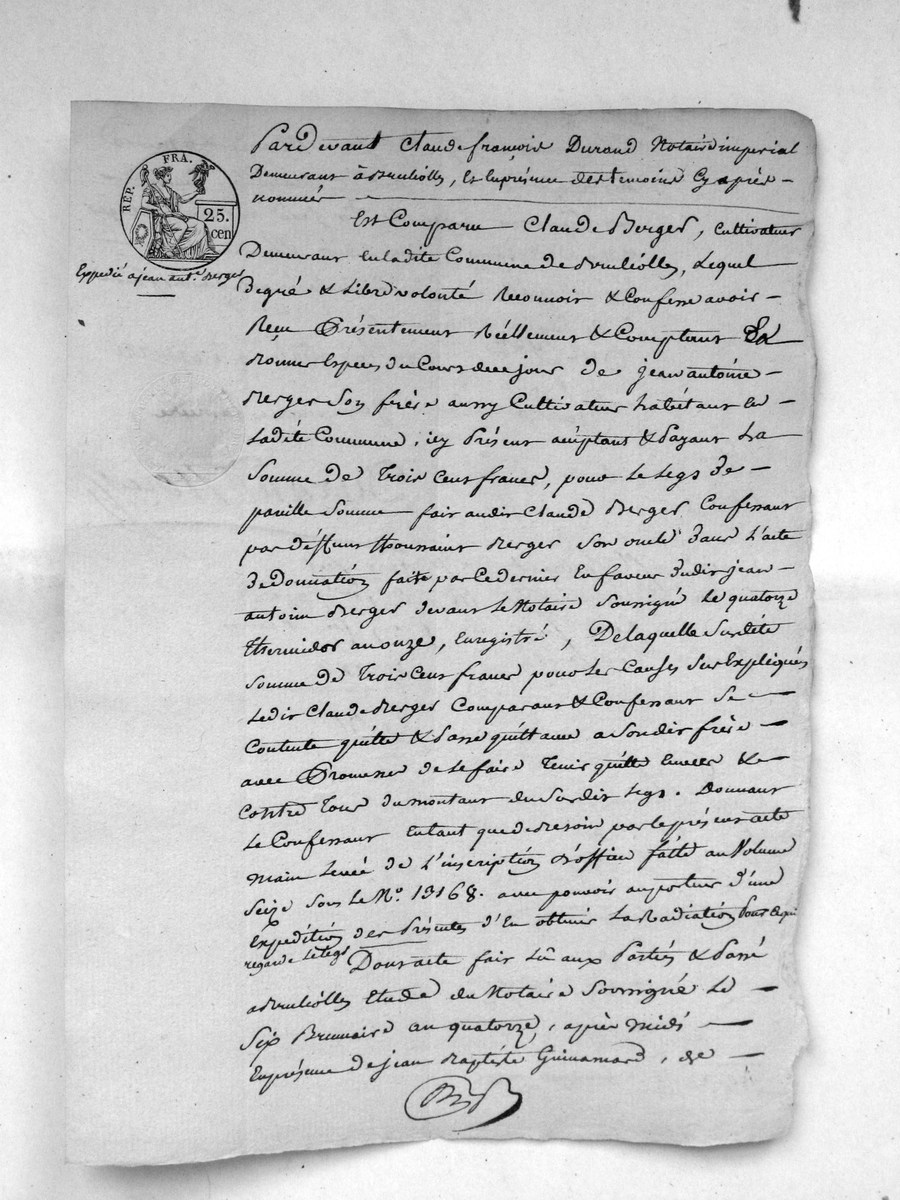 RÉP. FRA.
25.
cen
Expedié a jean ant.e Berger
Pardevant Claude françois Durand Notaire imperial
Demeurant à Brulliolles, Et En présence des temoins Cy après
nommés
Est Comparu Claude Berger, Cultivateur
Demeurant En ladite Commune de Brulliolles, Lequel
De gré & Libre volonté Reconnoit & Confesse avoir
Reçu Présentement Réellement & Comptant En
bonnes Espèces du Cours de ce jour de jean antoine
Berger Son frère aussy Cultivateur habitant En
Ladite Commune, icy Présent acceptant & Payant La
Somme de Trois Cent francs, pour le Legs de
pareille Somme fait audit Claude Berger Confessant
par Déffunt Thoussaint Berger Son oncle dans L'acte
de Donnation faite par Ce dernier En faveur dudit jean
antoine Berger devant Le Notaire Soussigné Le quatorze
thermidor an onze, Enregistré, De laquelle Susdite
Somme de Trois Cent francs pour les Causes Sus Expliqués
Ledit Claude Berger Comparant & Confessant Se
Contente quitte & Passe quittance a Son dit frère
avec Promesse de le faire Tenir quitte Envers &
Contre Tous du montant du Susdit Legs. Donnant
Le Confessant En tant que de besoin par le présent acte
main Levée de L'inscription d'office faite au Volume
Seize Sous Le No. 13168. avec pouvoir au porteur d'une
Expédition des Présentes d'En obtenir La Radiation Pour ce qui
regarde le legs
Dont acte fait Lû aux Parties & Passé
a Brulliolles Etude du Notaire Soussigné Le
Six Brumaire an quatorze, après midi
En présence de jean Baptiste Guinamard, &